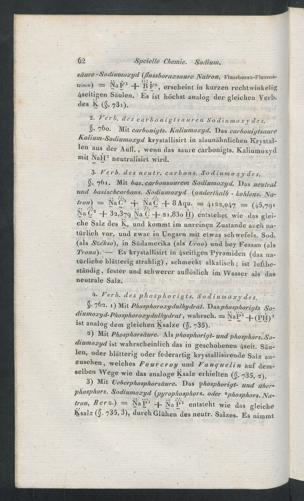 62 Specielle Chemie. Sodium.
säure-Sodiumoxyd (flussborazsaure Natron,
erscheint in kurzen rechtwinkelig
4seitigen Säulen. Es ist höchst analog der gleichen Verb.
des K (§. 731).
2. Verb. des carbonigtsauren Sodiumoxydes.
§. 760. Mit carbonigts. Kaliumoxyd. Das carbonigtsaure
Kalium-Sodiumoxyd krystallisirt in alaunähnlichen Krystal-
len aus der Aufl., wenn das saure carbonigts. Kaliumoxyd
mit neutralisirt wird.
3. Verb. des neutr. carbons. Sodiumoxydes.
§. 761. Mit bas. carbonsaurem Sodiumoxyd. Das neutral
und basischcarbons. Sodiumoxyd (anderthalb-kohlens. Na-
tron) = + 8 Aqu. =
entstehet wie das glei-
che Salz des K, und kommt im unreinen Zustande auch na-
türlich vor, und zwar in Ungarn mit etwas schwefels. Sod.
(als Székso), in Südamerika (als Urao) und bey Fezzan (als
Trona). — Es krystallisirt in 4seitigen Pyramiden (das na-
türliche blätterig strahlig), schmeckt alkalisch; ist luftbe-
ständig, fester und schwerer auflöslich im Wasser als das
neutrale Salz.
4. Verb. des phosphorigts. Sodiumoxydes.
§. 762. 1) Mit Phosphoroxydulhydrat. Das phosphorigts. So-
diumoxyd-Phosphoroxydulhydrat, wahrsch. =
ist analog dem gleichen Ksalze (§. 735).
2) Mit Phosphorsäure. Als phosphorigt- und phosphors. So-
diumoxyd ist wahrscheinlich das in geschobenen 4seit. Säu-
len, oder blätterig oder federartig krystallisirende Salz an-
zusehen, welches Fourcroy und Vauquelin auf dem-
selben Wege wie das analoge Ksalz erhielten (§. 735, 2).
3) Mit Ueberphosphorsäure. Das phosphorigt- und über-
phosphors. Sodiumoxyd (pyrophosphors. oder phosphors. Na-
tron, Berz.) = entsteht wie das gleiche
Ksalz (§. 735, 3), durch Glühen des neutr. Salzes. Es nimmt